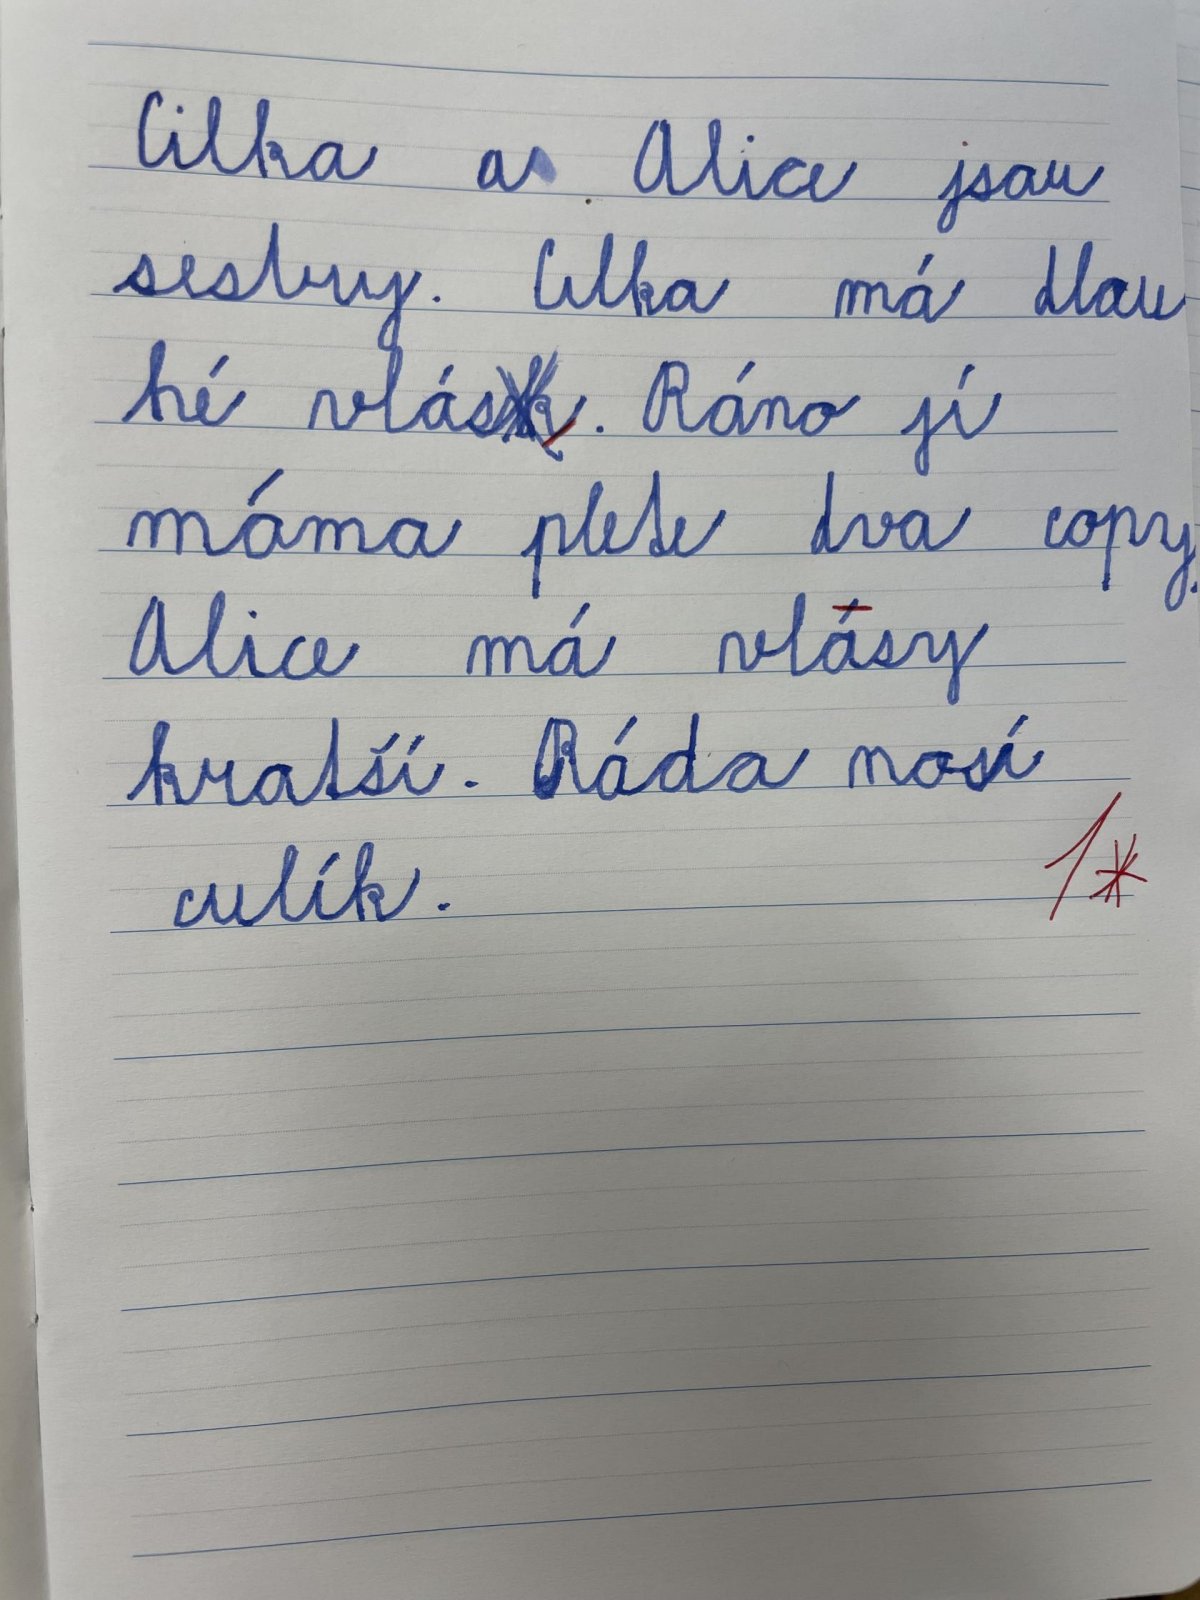 Cilka a Alice jsou
sestry. Cilka má dlou
hé vlásy. Ráno jí
máma plete dva copy.
Alice má vlásy
kratší. Ráda nosí
culík.
1*